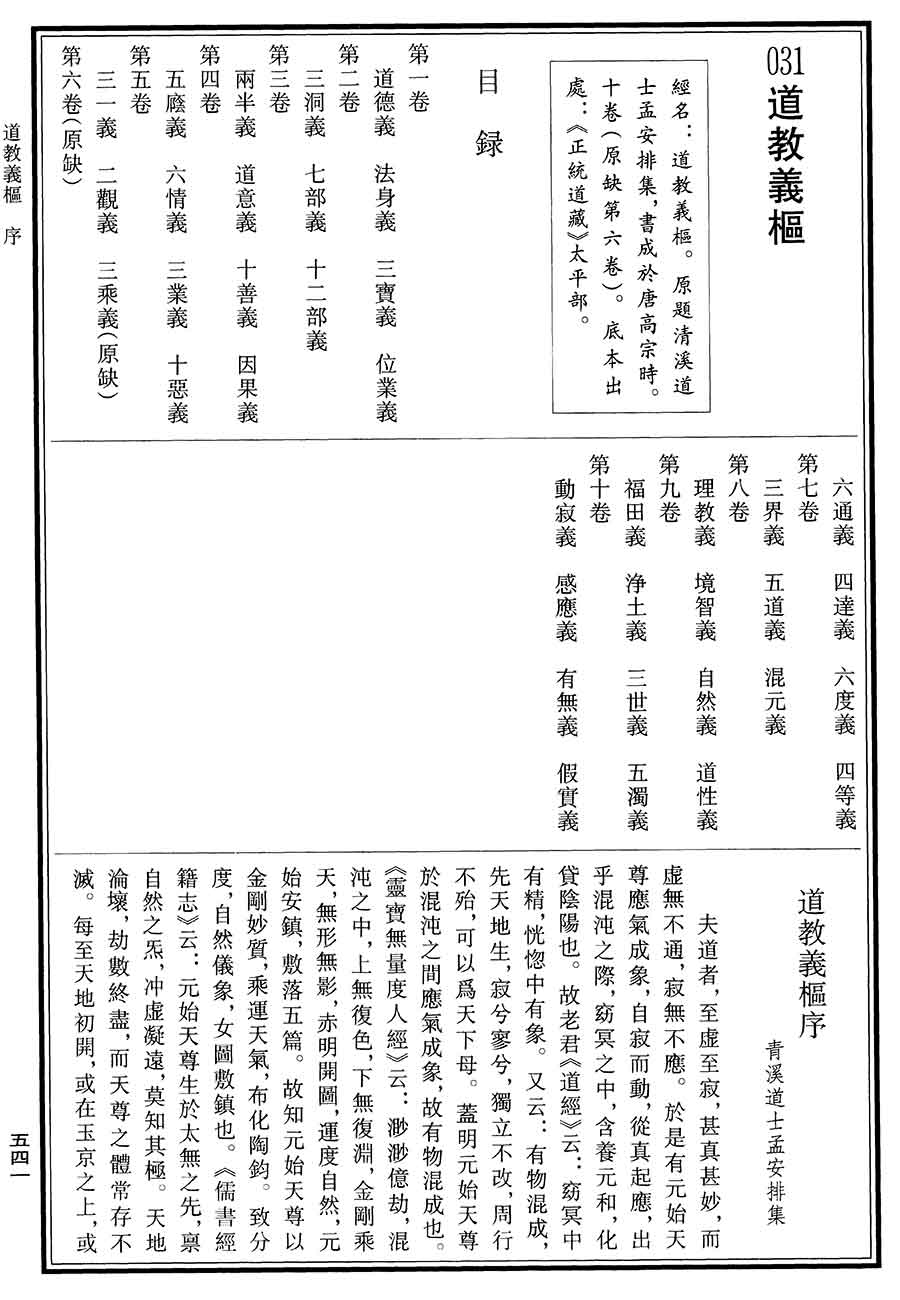 031道教義樞
經名：道教義樞。原題清溪道
士孟安排集，書成於唐高宗時。
十卷（原缺第六卷）。底本出
處：《正統道藏》太平部。
目録
第一卷
道德義　法身義　三寶義　位業義
第二卷
三洞義　七部義　十二部義
第三卷
兩半義　道意義　十善義　因果義
第四卷
五廕義　六情義　三業義　十惡義
第五卷
三一義　二觀義　三乘義（原缺）
第六卷（原缺）
六通義　四達義　六度義　四等義
第七卷
三界義　五道義　混元義
第八卷
理教義　境智義　自然義　道性義
第九卷
福田義　浄土義　三世義　五濁義
第十卷
動寂義　感應義　有無義　假實義
道教義樞序
青溪道士孟安排集
夫道者，至虛至寂，甚真甚妙，而
虛無不通，寂無不應。於是有元始天
尊應氣成象，自寂而動，從真起應，出
乎混沌之際，窈冥之中，含養元和，化
貸陰陽也。故老君《道經》云：窈冥中
有精，恍惚中有象。又云：有物混成，
先天地生，寂兮寥兮，獨立不改，周行
不殆，可以爲天下母。蓋明元始天尊
於混沌之間應氣成象，故有物混成也。
《靈寶無量度人經》云：渺渺億劫，混
沌之中，上無復色，下無復淵，金剛乘
天，無形無影，赤明開圖，運度自然，元
始安鎮，敷落五篇。故知元始天尊以
金剛妙質，乘運天氣，布化陶鈞。致分
度，自然儀象，女圖敷鎮也。《儒書經
籍志》云：元始天尊生於太無之先，禀
自然之炁，冲虛凝遠，莫知其極。天地
淪壞，劫數終盡，而天尊之體常存不
滅。每至天地初開，或在玉京之上，或
道教義樞　序
五四一